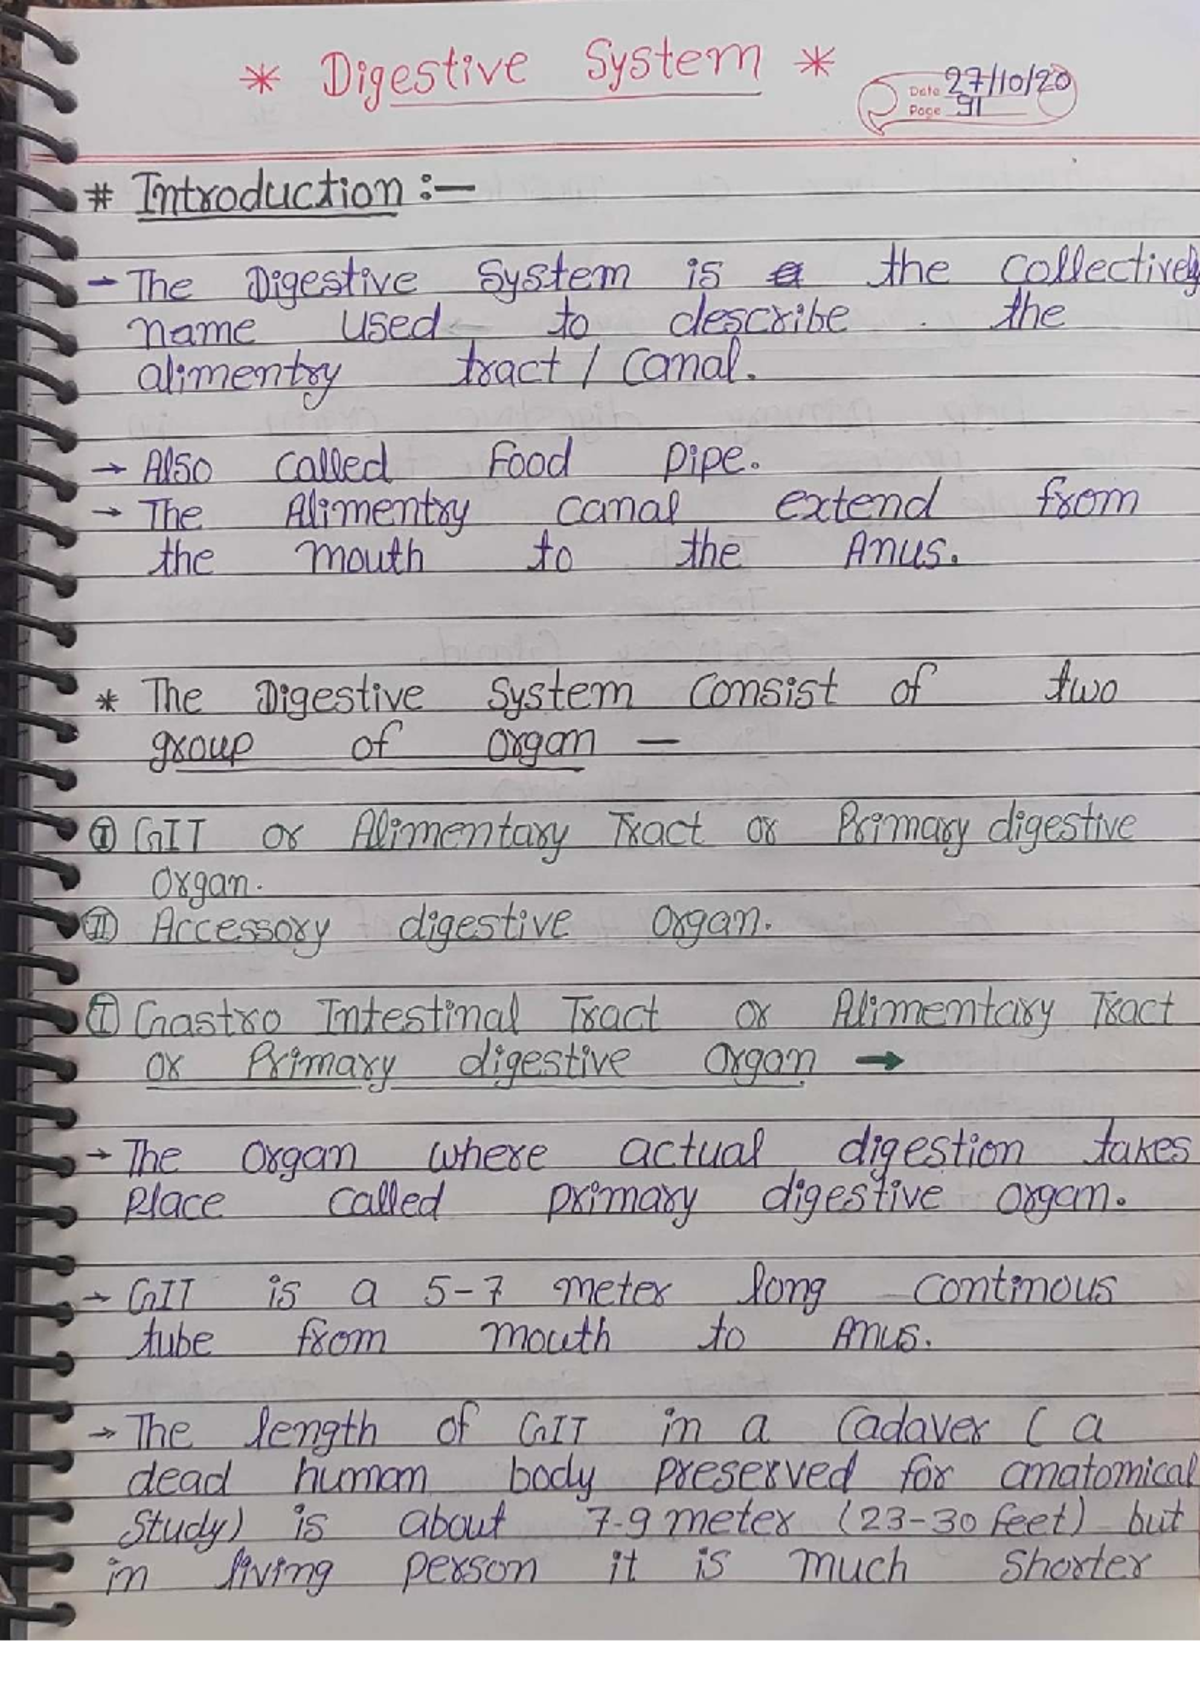 * Digestive System *
Date 27/10/20
Page 91
# Introduction :—
→ The Digestive System is the collectively
name used to describe the
alimentry tract / Canal.
→ Also called Food Pipe.
→ The Alimentry canal extend from
the mouth to the Anus.
* The Digestive System Consist of two
group of organ —
Ⓘ GIT or Alimentary Tract or Primary digestive
Organ.
Ⓘⓘ Accessory digestive organ.
Ⓘ Gastro Intestinal Tract or Alimentary Tract
or Primary digestive Organ →
→ The Organ where actual digestion takes
Place called primary digestive organ.
→ GIT is a 5-7 meter long continous
tube from mouth to Anus.
→ The length of GIT in a Cadaver ( a
dead human body preserved for anatomical
Study) is about 7-9 meter (23-30 feet) but
in living person it is much Shorter